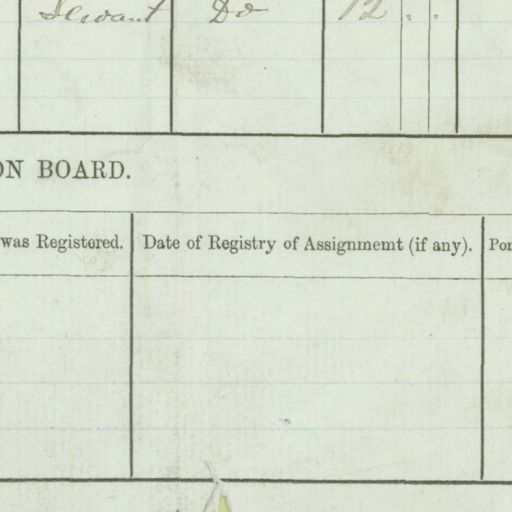 Servant Do 12 . .
ON BOARD.
was Registered. Date of Registry of Assignmemt (if any). Por